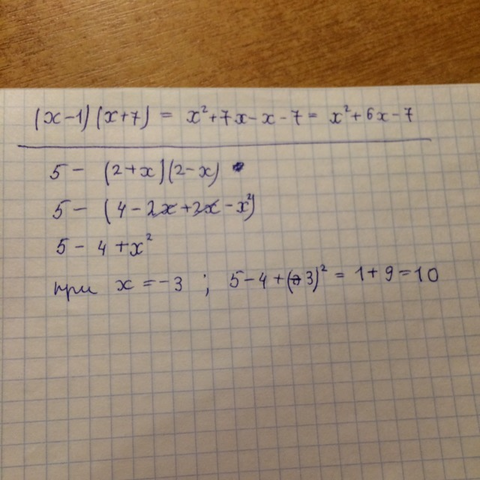 (x-1)(x+7) = x²+7x-x-7 = x²+6x-7
5 - (2+x)(2-x)
5 - (4-2x+2x-x²)
5 - 4 + x²
при x = -3 ; 5-4+(-3)² = 1+9=10